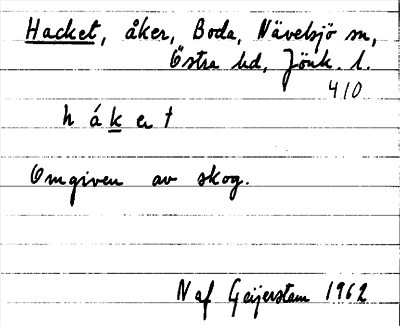 Hacket, åker, Boda, Nävelsjö sn,
Östra hd, Jönk. l.
410
h á k e t
Omgiven av skog.
N af Geijerstam 1962